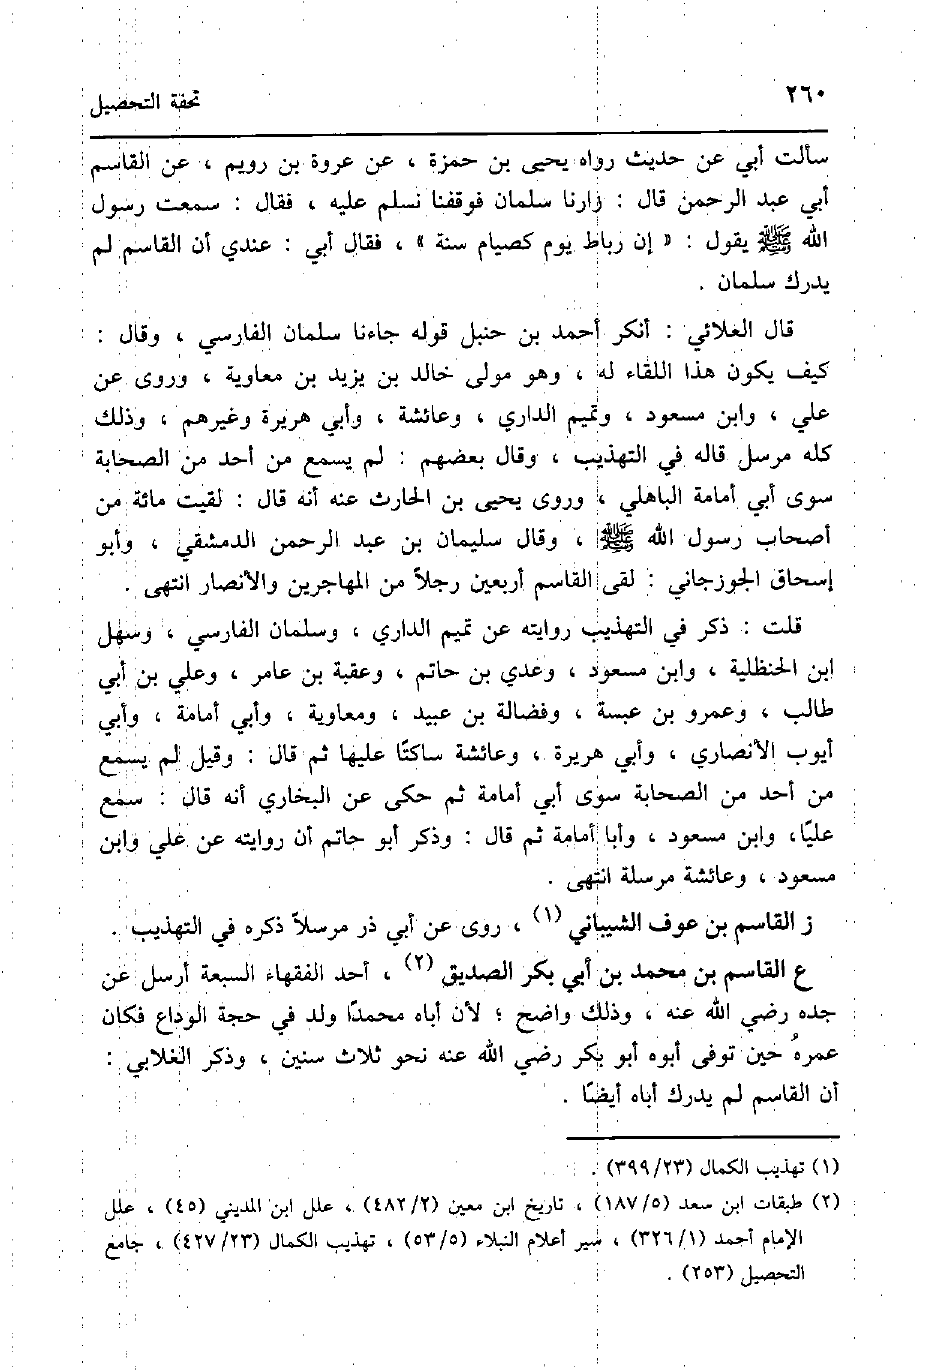 ٢٦٠
تحفة التحصيل
سألت أبي عن حديث رواه يحيى بن حمزة ، عن عروة بن رويم ، عن القاسم
أبي عبد الرحمن قال : زارنا سلمان فوقفنا نسلم عليه ، فقال : سمعت رسول
الله ﷺ يقول : « إن رباط يوم كصيام سنة » ، فقال أبي : عندي أن القاسم لم
يدرك سلمان .
قال العلائي : أنكر أحمد بن حنبل قوله جاءنا سلمان الفارسي ، وقال :
كيف يكون هذا اللقاء له ، وهو مولى خالد بن يزيد بن معاوية ، وروى عن
علي ، وابن مسعود ، وتميم الداري ، وعائشة ، وأبي هريرة وغيرهم ، وذلك
كله مرسل قاله في التهذيب ، وقال بعضهم : لم يسمع من أحد من الصحابة
سوى أبي أمامة الباهلي ، وروى يحيى بن الحارث عنه أنه قال : لقيت مائة من
أصحاب رسول الله ﷺ ، وقال سليمان بن عبد الرحمن الدمشقي ، وأبو
إسحاق الجوزجاني : لقى القاسم أربعين رجلاً من المهاجرين والأنصار انتهى .
قلت : ذكر في التهذيب روايته عن تميم الداري ، وسلمان الفارسي ، وسهل
ابن الحنظلية ، وابن مسعود ، وعدي بن حاتم ، وعقبة بن عامر ، وعلي بن أبي
طالب ، وعمرو بن عبسة ، وفضالة بن عبيد ، ومعاوية ، وأبي أمامة ، وأبي
أيوب الأنصاري ، وأبي هريرة ، وعائشة ساكتًا عليها ثم قال : وقيل لم يسمع
من أحد من الصحابة سوى أبي أمامة ثم حكى عن البخاري أنه قال : سمع
عليًا، وابن مسعود ، وأبا أمامة ثم قال : وذكر أبو حاتم أن روايته عن علي وابن
مسعود ، وعائشة مرسلة انتهى .
ز القاسم بن عوف الشيباني (١) ، روى عن أبي ذر مرسلاً ذكره في التهذيب .
ع القاسم بن محمد بن أبي بكر الصديق (٢) ، أحد الفقهاء السبعة أرسل عن
جده رضي الله عنه ، وذلك واضح ؛ لأن أباه محمدًا ولد في حجة الوداع فكان
عمرهُ حين توفى أبوه أبو بكر رضي الله عنه نحو ثلاث سنين ، وذكر الغلابي :
أن القاسم لم يدرك أباه أيضًا .
(١) تهذيب الكمال (٣٩٩/٢٣) .
(٢) طبقات ابن سعد (١٨٧/٥) ، تاريخ ابن معين (٤٨٢/٢) ، علل ابن المديني (٤٥) ، علل
الإمام أحمد (٣٢٦/١) ، سير أعلام النبلاء (٥٣/٥) ، تهذيب الكمال (٤٢٧/٢٣) ، جامع
التحصيل (٢٥٣) .